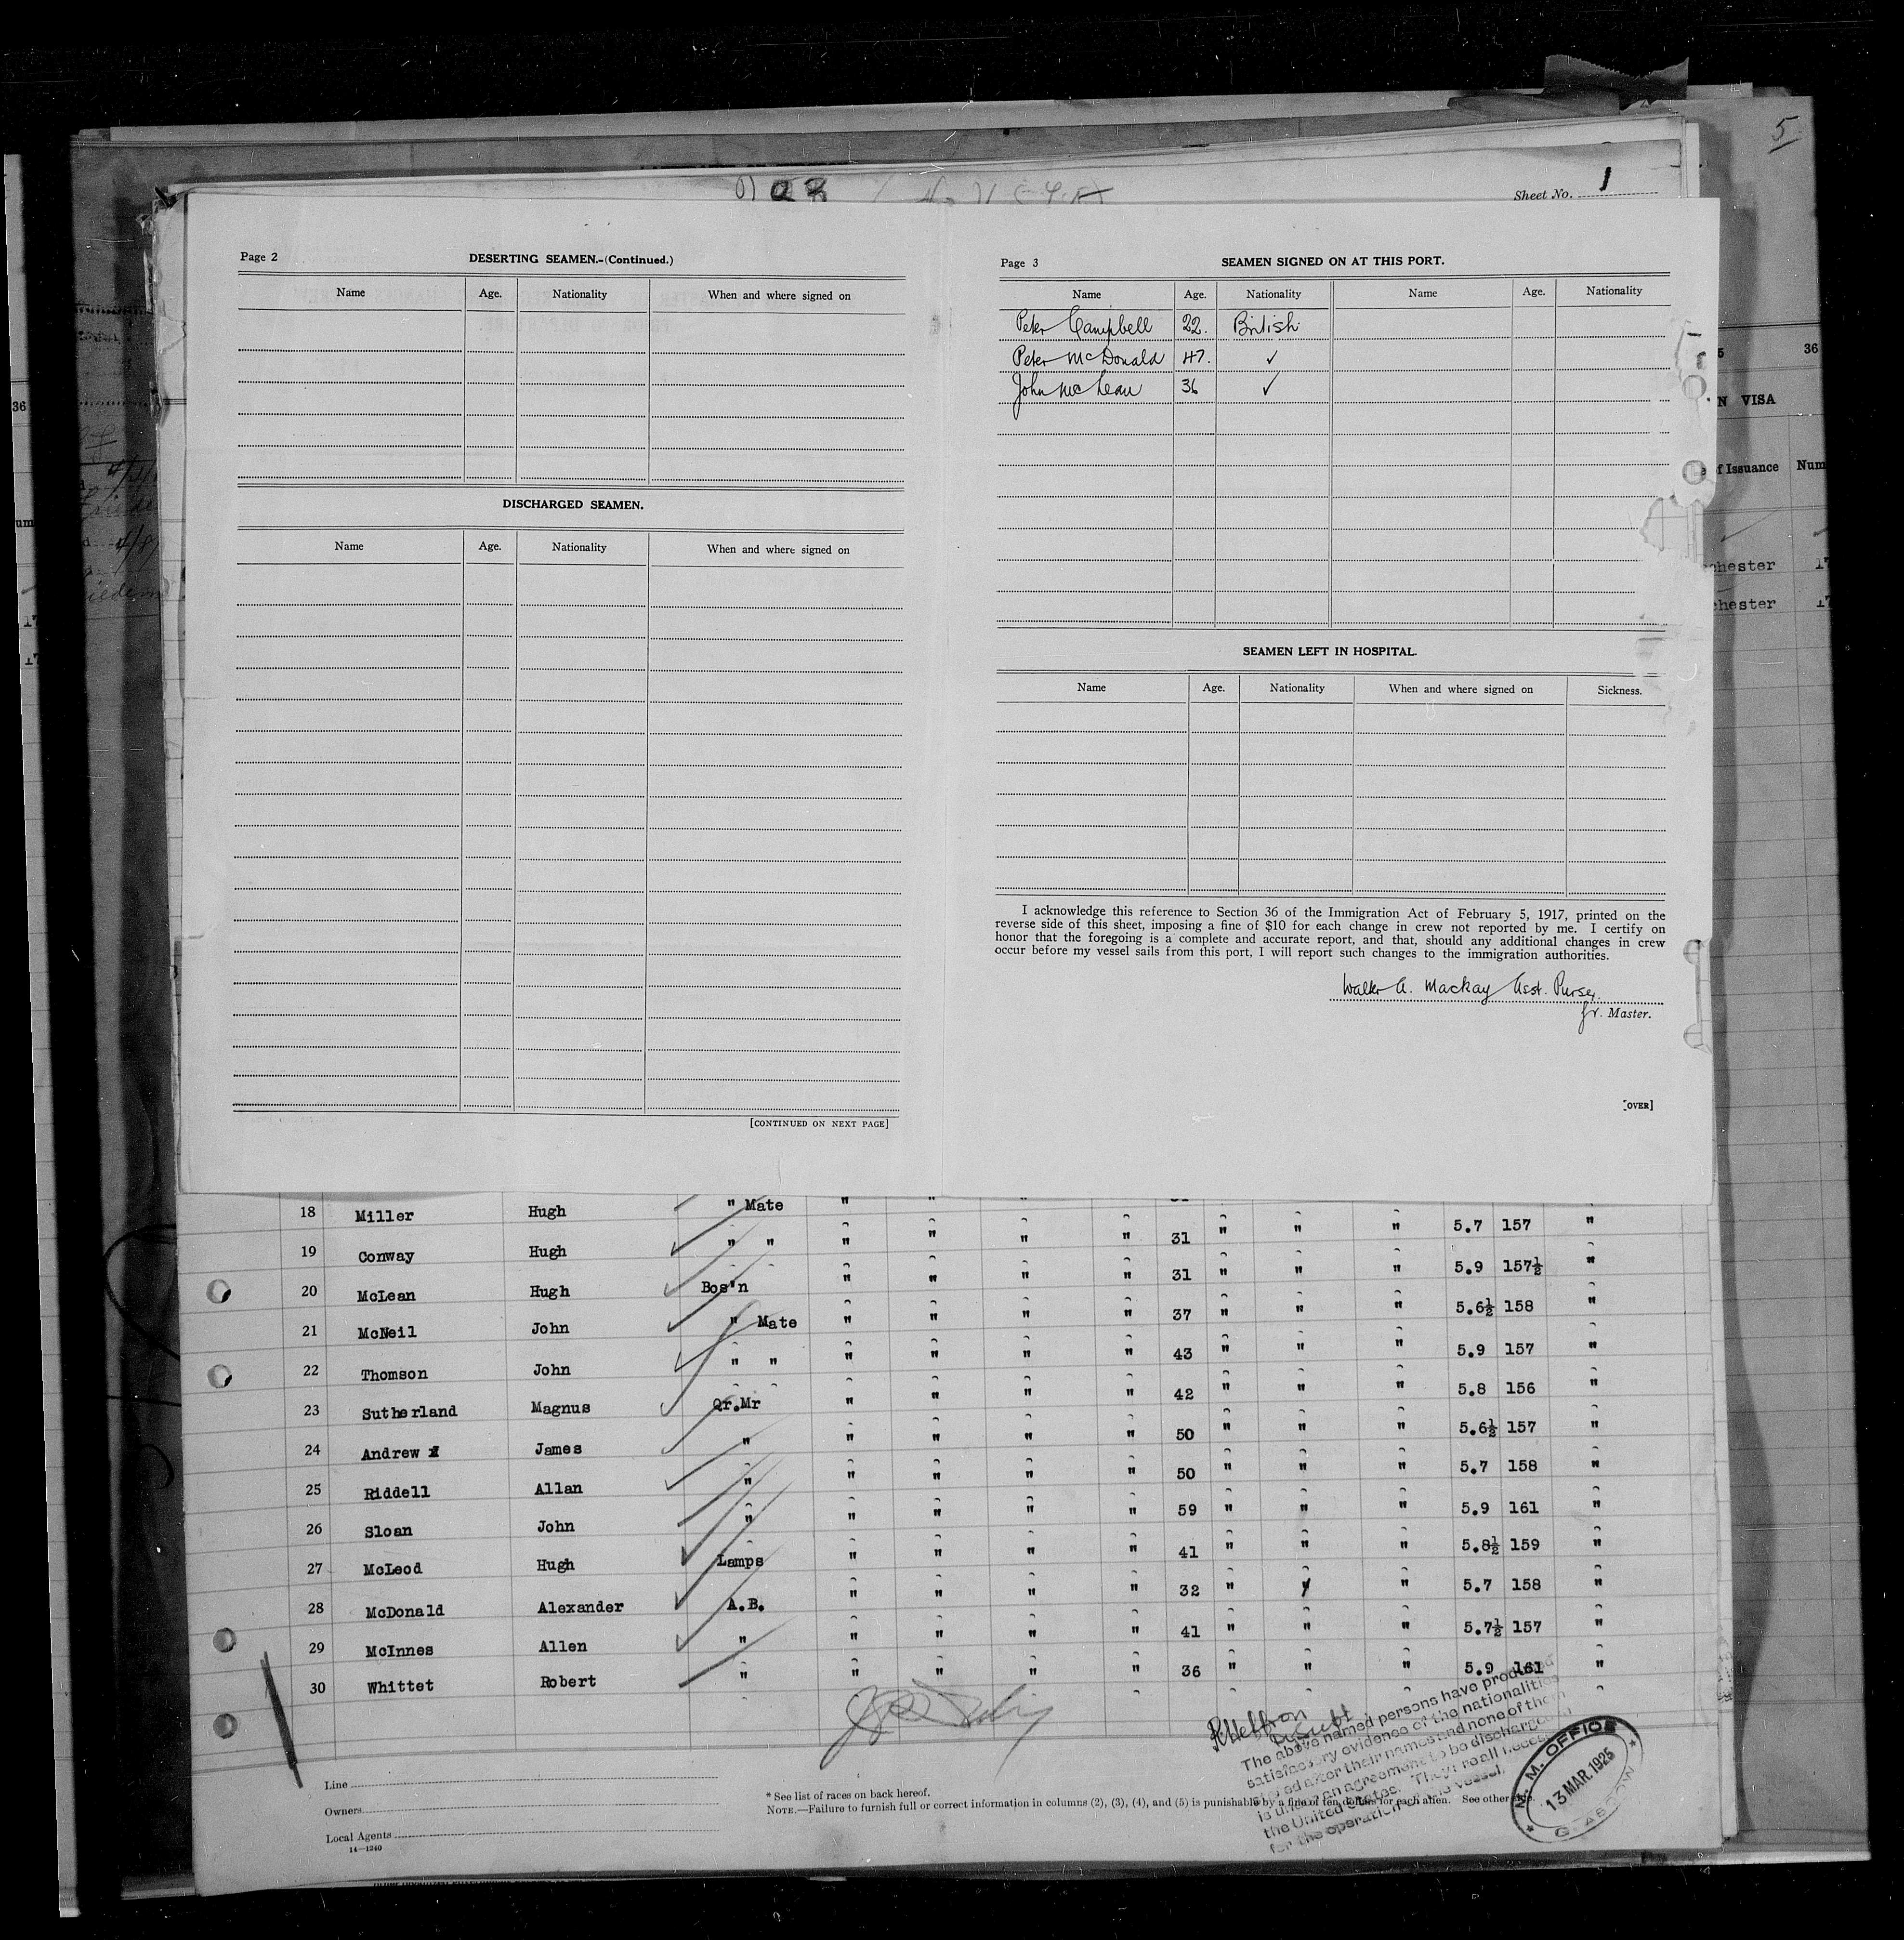 5
Sheet No. 1
Page 2
DESERTING SEAMEN.-(Continued.)
Name Age. Nationality When and where signed on
DISCHARGED SEAMEN.
Name Age. Nationality When and where signed on
[CONTINUED ON NEXT PAGE]
Page 3
SEAMEN SIGNED ON AT THIS PORT.
Name Age. Nationality Name Age. Nationality
Peter Campbell 22. British
Peter McDonald 47. ✓
John McLean 36 ✓
SEAMEN LEFT IN HOSPITAL.
Name Age. Nationality When and where signed on Sickness.
I acknowledge this reference to Section 36 of the Immigration Act of February 5, 1917, printed on the
reverse side of this sheet, imposing a fine of $10 for each change in crew not reported by me. I certify on
honor that the foregoing is a complete and accurate report, and that, should any additional changes in crew
occur before my vessel sails from this port, I will report such changes to the immigration authorities.
Walter A. Mackay Asst. Purser
fr. Master.
[OVER]
36
VISA
of Issuance Num
chester 17
chester 17
18 Miller Hugh " Mate " " "
19 Conway Hugh " " " " " " 31 " " " 5.7 157 "
20 McLean Hugh Bos'n " " " " 31 " " " 5.9 157½ "
21 McNeil John " Mate " " " " 37 " " " 5.6½ 158 "
22 Thomson John " " " " " " 43 " " " 5.9 157 "
23 Sutherland Magnus Qr.Mr " " " " 42 " " " 5.8 156 "
24 Andrew James " " " " " 50 " " " 5.6½ 157 "
25 Riddell Allan " " " " " 50 " " " 5.7 158 "
26 Sloan John " " " " " 59 " " " 5.9 161 "
27 McLeod Hugh Lamps " " " " 41 " " " 5.8½ 159 "
28 McDonald Alexander A.B. " " " " 32 " " " 5.7 158 "
29 McInnes Allen " " " " " 41 " " " 5.7½ 157 "
30 Whittet Robert " " " " " 36 " " " 5.9 161 "
Line
Owners
Local Agents
14—1240
* See list of races on back hereof.
NOTE.—Failure to furnish full or correct information in columns (2), (3), (4), and (5) is punishable by a fine of ten dollars for each alien. See other side.
The above named persons have produced
satisfactory evidence of the nationalities
after their names and none of them
is under an agreement to be discharged in
the United States. They are all necessary
for the operation vessel.
M. M. OFFICE
13 MAR. 1925
GLASGOW